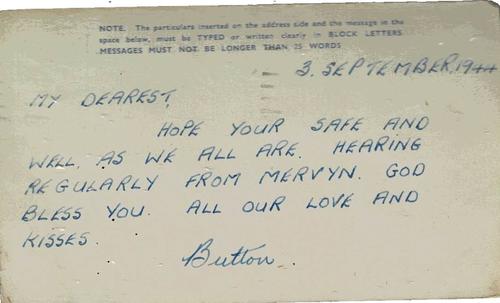 NOTE. The particulars inserted on the address side and the message in the
space below, must be TYPED or written clearly in BLOCK LETTERS.
MESSAGES MUST NOT BE LONGER THAN 25 WORDS
3. SEPTEMBER, 1944
MY DEAREST,
HOPE YOUR SAFE AND
WELL. AS WE ALL ARE. HEARING
REGULARLY FROM MERVYN. GOD
BLESS YOU. ALL OUR LOVE AND
KISSES.
Button.